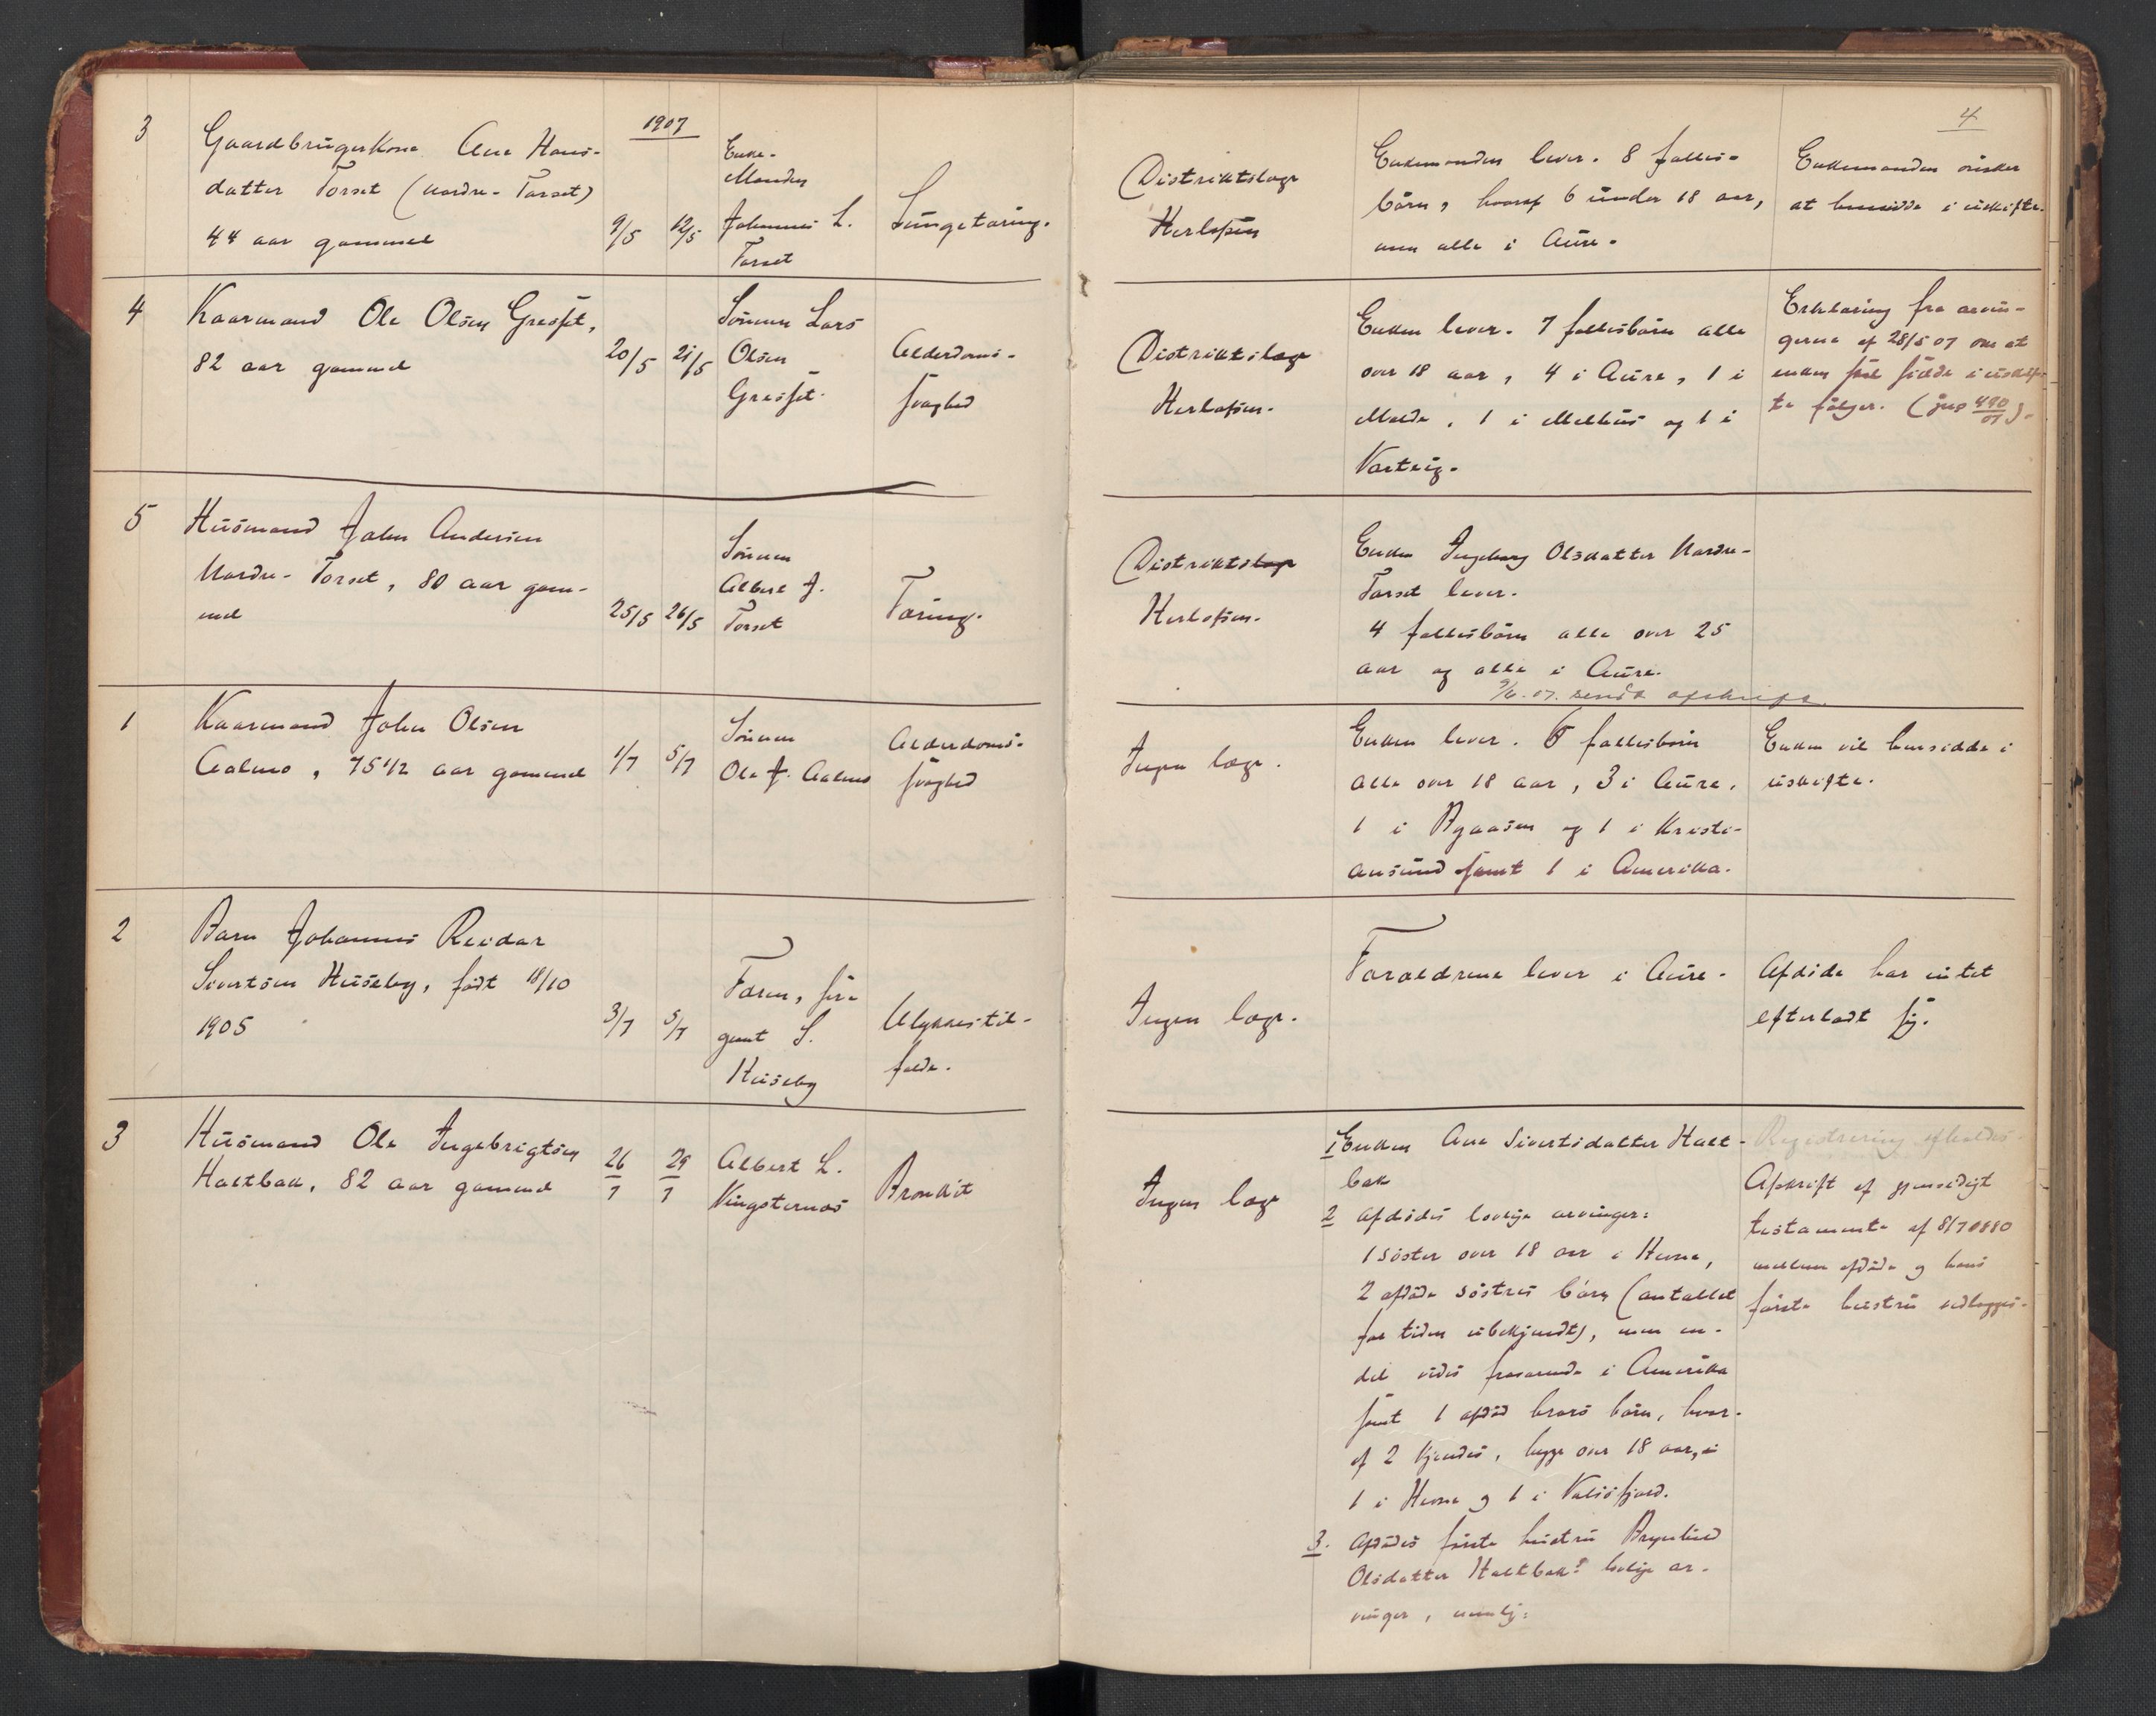 4
1907
3
Gaardbrugerkone Ane Hans-
datter Torset (Nordre-Torset)
44 aar gammel
9/5
12/5
Enke-
Manden
Johannes L.
Torset
Lungetæring.
Distriktslæge
Herlofsen
Enkemanden lever. 8 fælles-
børn, hvoraf 6 under 18 aar,
men alle i Aure.
Enkemanden ønsker
at hensidde i uskifte.
4
Kaarmand Ole Olsen Gresset,
82 aar gammel
20/5
21/5
Sønnen Lars
Olsen
Gresset.
Alderdoms-
svaghed
Distriktslæge
Herlofsen.
Enken lever. 7 fællesbørn alle
over 18 aar, 4 i Aure, 1 i
Molde, 1 i Melhus og 1 i
Varteig.
Erklæring fra arvin-
gerne af 28/5 07 om at
enken skal sidde i uskif-
te følger. (jnr 490/07).
5
Husmand John Andersen
Nordre-Torset, 80 aar gam-
mel
25/5
26/5
Sønnen
Albert J.
Torset
Tæring.
Distriktslæge
Herlofsen.
Enken Ingeborg Olsdatter Nordre-
Torset lever.
4 fællesbørn alle over 25
aar og alle i Aure.
9/6.07. sendt afskrift.
1
Kaarmand John Olsen
Aalmo, 75 1/2 aar gammel
1/7
5/7
Sønnen
Ole J. Aalmo
Alderdoms-
svaghed
Ingen læge.
Enken lever. 6 fællesbørn
alle over 18 aar, 3 i Aure,
1 i Byaasen og 1 i Kristi-
ansund samt 1 i Amerika.
Enken vil hensidde i
uskifte.
2
Barn Johannes Reidar
Sivertsen Huseby, født 18/10
1905
3/7
5/7
Faren, ser-
gent S.
Huseby
Ulykkestil-
fælde.
Ingen læge.
Forældrene lever i Aure.
Afdøde har intet
efterladt sig.
3
Husmand Ole Ingebrigtsen
Haltbak, 82 aar gammel
26/7
29/7
Albert L.
Vingsternes
Bronkit
Ingen læge
1 Enken Ane Sivertsdatter Halt-
bak
2 Afdødes lovlige arvinger:
1 søster over 18 aar i Hevne,
2 afdøde søstres børn (antallet
for tiden ubekjendt), men en-
del vides fraværende i Amerika
samt 1 afdød brors børn, hvor-
af 2 kjendes, begge over 18 aar,
1 i Hevne og 1 i Valsøfjord.
3. Afdødes første hustru Brynhild
Olsdatter Haltbak's lovlige ar-
vinger, nemlig:
Registrering afholdes.
Afskrift af gjensidigt
testamente af 8/7 1880
mellem afdøde og hans
første hustru vedlægges.